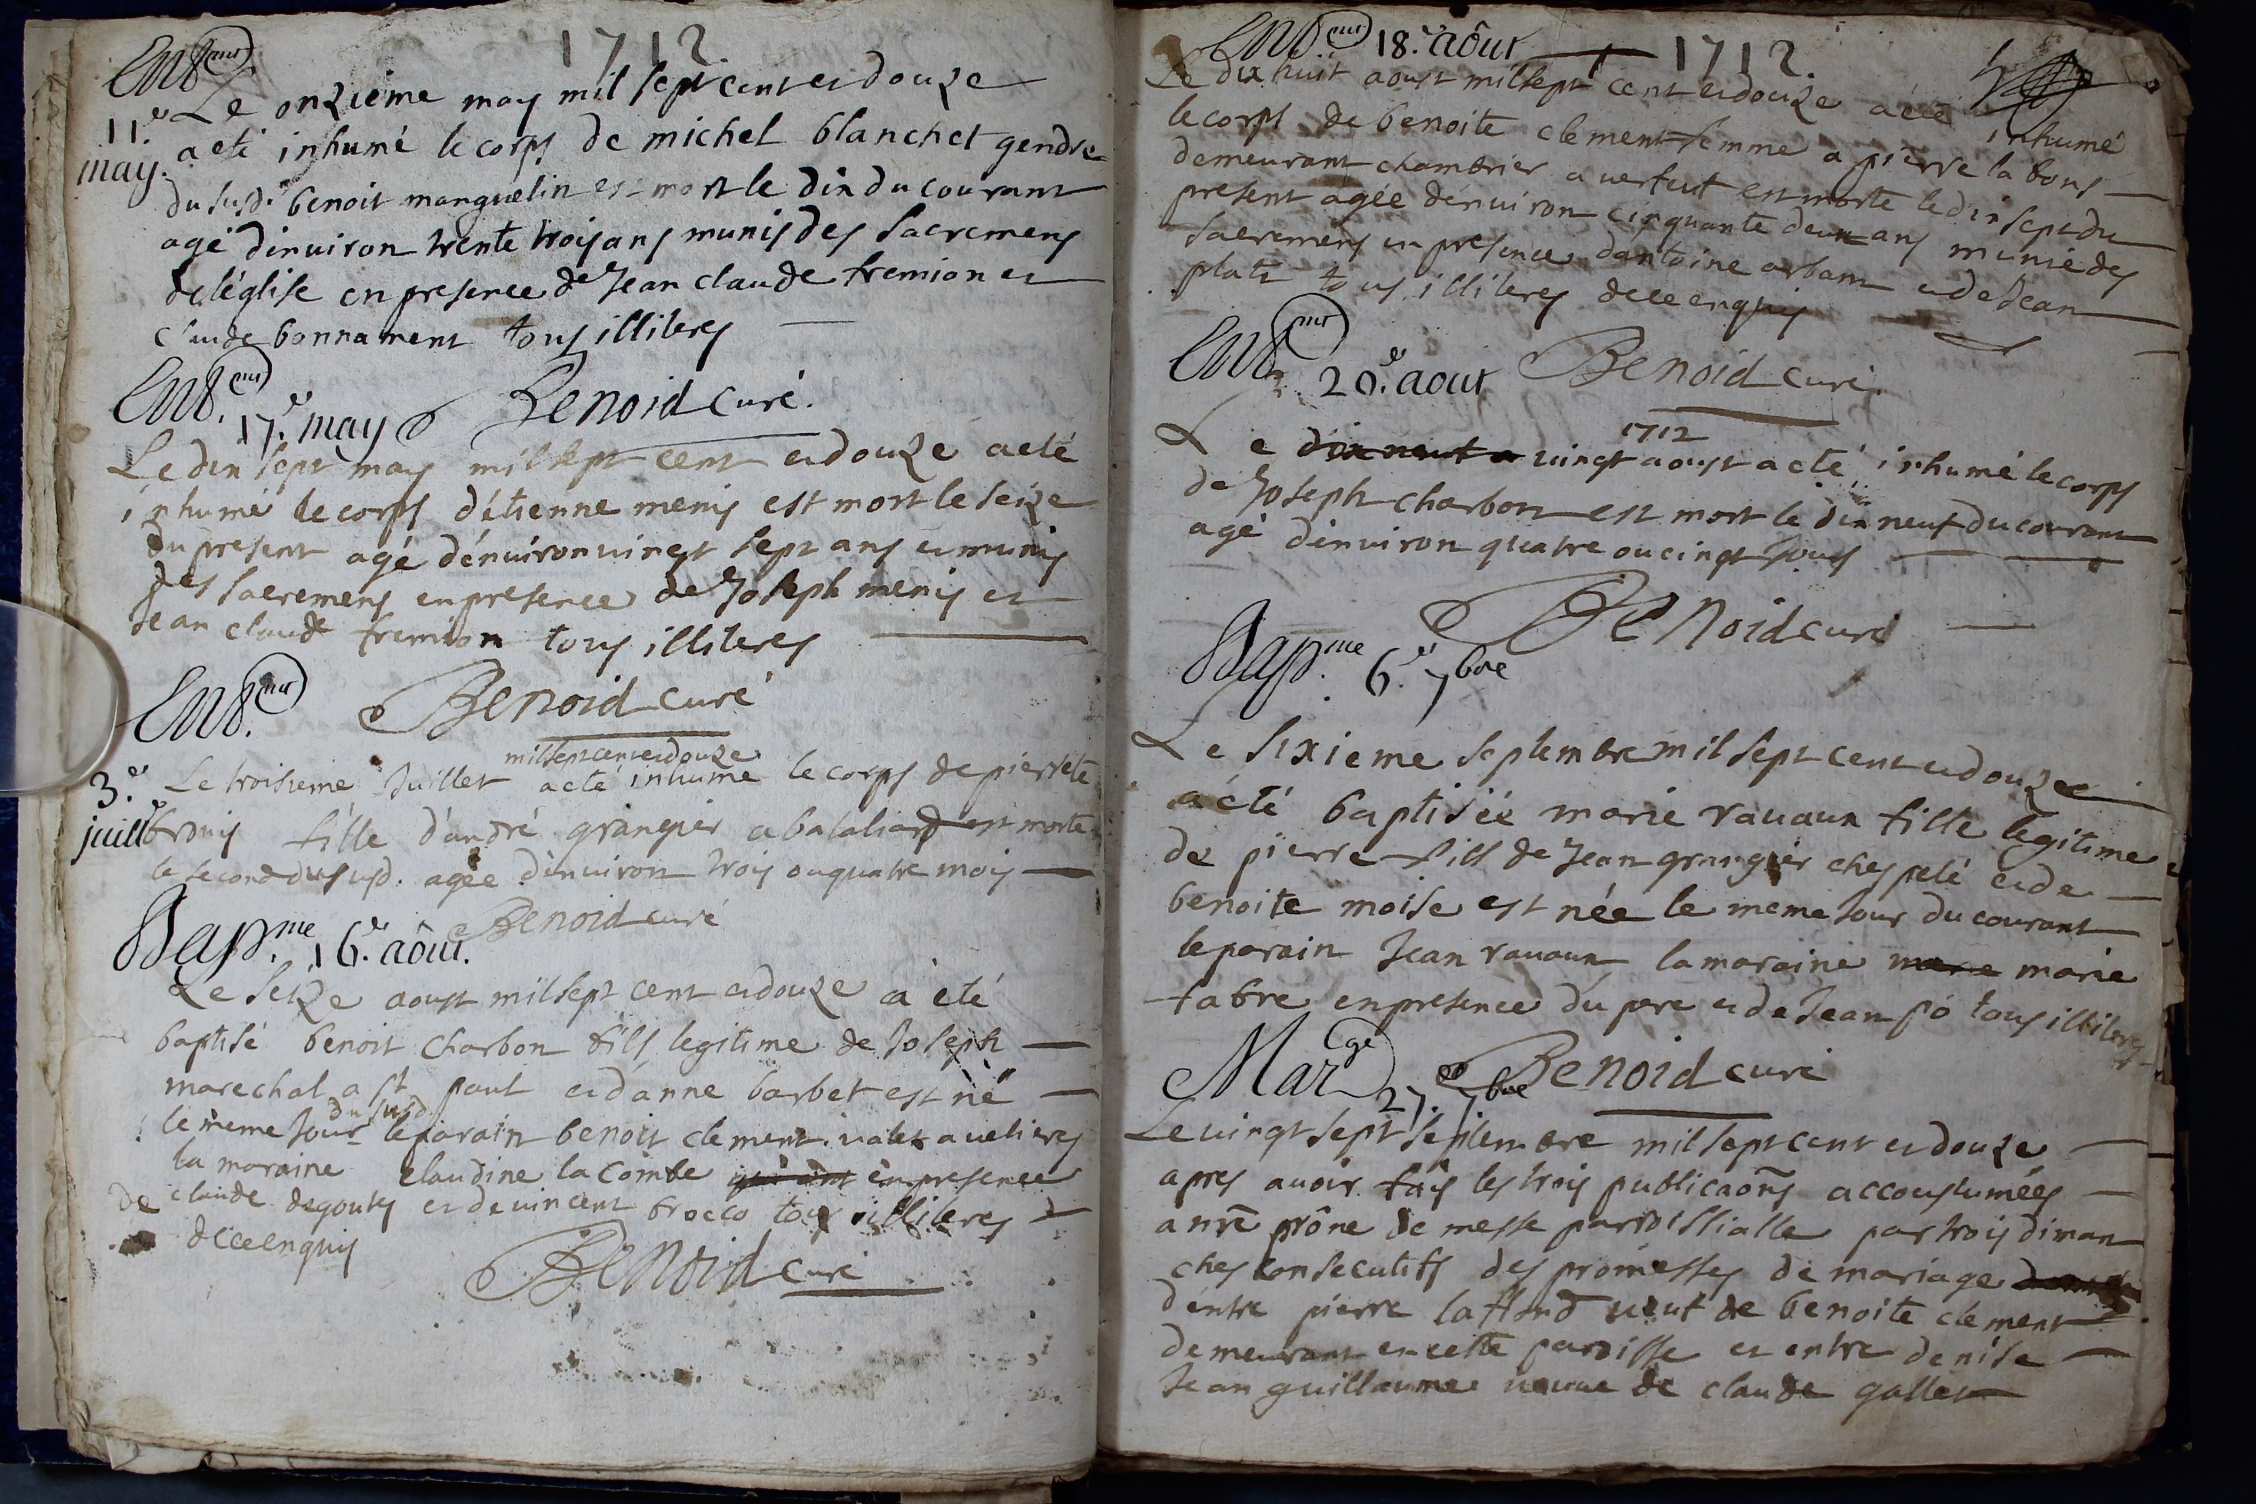 1712
Ent.ment
11.e may.
Le onzieme may mil sept cent et douze
a eté inhumé le corps de michel blanchet gendre
du susd. benoit manguelin est mort le dix du courant
agé dinuiron trente trois ans munis des sacremens
de léglise en presence de Jean claude fremion et
claude bonnament tous illiteres
Benoid curé.
Ent.ment 17.e may
Le dix sept may mil sept cent et douze a eté
inhumé le corps détienne menis est mort le seize
du present agé dénuiron uingt sept ans et munis
des sacremens en presence de Joseph menis et
Jean claude fremion tous illiteres
Benoid curé
Ent.ment
3.e juill
mil sept cent et douze
Le troisieme Juillet a eté inhume le corps de pierrete
brouis fille dandré grangier a balaliard est morte
le second du susd. agée dinuiron trois ou quatre mois
Benoid curé
Bap.me 16.e aôut.
Le seize aoust mil sept cent et douze a eté
baptisé benoit charbon fils legitime de Joseph
marechal a st paul et danne barbet est né
le meme Jour du susd. le parain benoit clement valet a uelieres
la maraine claudine la combe en presence
de claude degoutes et de uincent brocco tous illiteres
de ce enquis
Benoid curé
Ent.ment 18.e aôut 1712.
Le dix huit aoust mil sept cent et douze a eté inhumé
le corps de benoite clement femme a pierre la bous
demeurant chambrier a uertut est morte le dix sept du
present agée dénuiron cinquante deux ans munie des
sacremens en presence dantoine arban et de Jean
plat tous illiteres de ce enquis
Benoid curé
Ent. 20.e aout
1712
Le dix neuf a uingt aoust a eté inhumé le corps
de Joseph charbon est mort le dix neuf du courant
agé dinuiron quatre ou cinq Jours
Benoid curé
Bap.me 6.e 7bre
Le sixieme septembre mil sept cent et douze
a eté baptisée marie rauaux fille legitime
de pierre fils de Jean grangier ches pelé et de
benoite moise est née le meme Jour du courant
le parain Jean rauaux la maraine marie marie
fabre en presence du pere et de Jean pó tous illiteres
Benoid curé
Mar.ge 27. 7bre
Le uingt sept septembre mil sept cent et douze
apres auoir fais les trois publicaõns accoustumées
a nr̃e prône de messe parroissialle par trois diman
ches consecutifs des promesses de mariage
déntre pierre laffond ueuf de benoite clement
demeurant en cette paroisse et entre denise
Jean guillaume ueuue de claude gallet